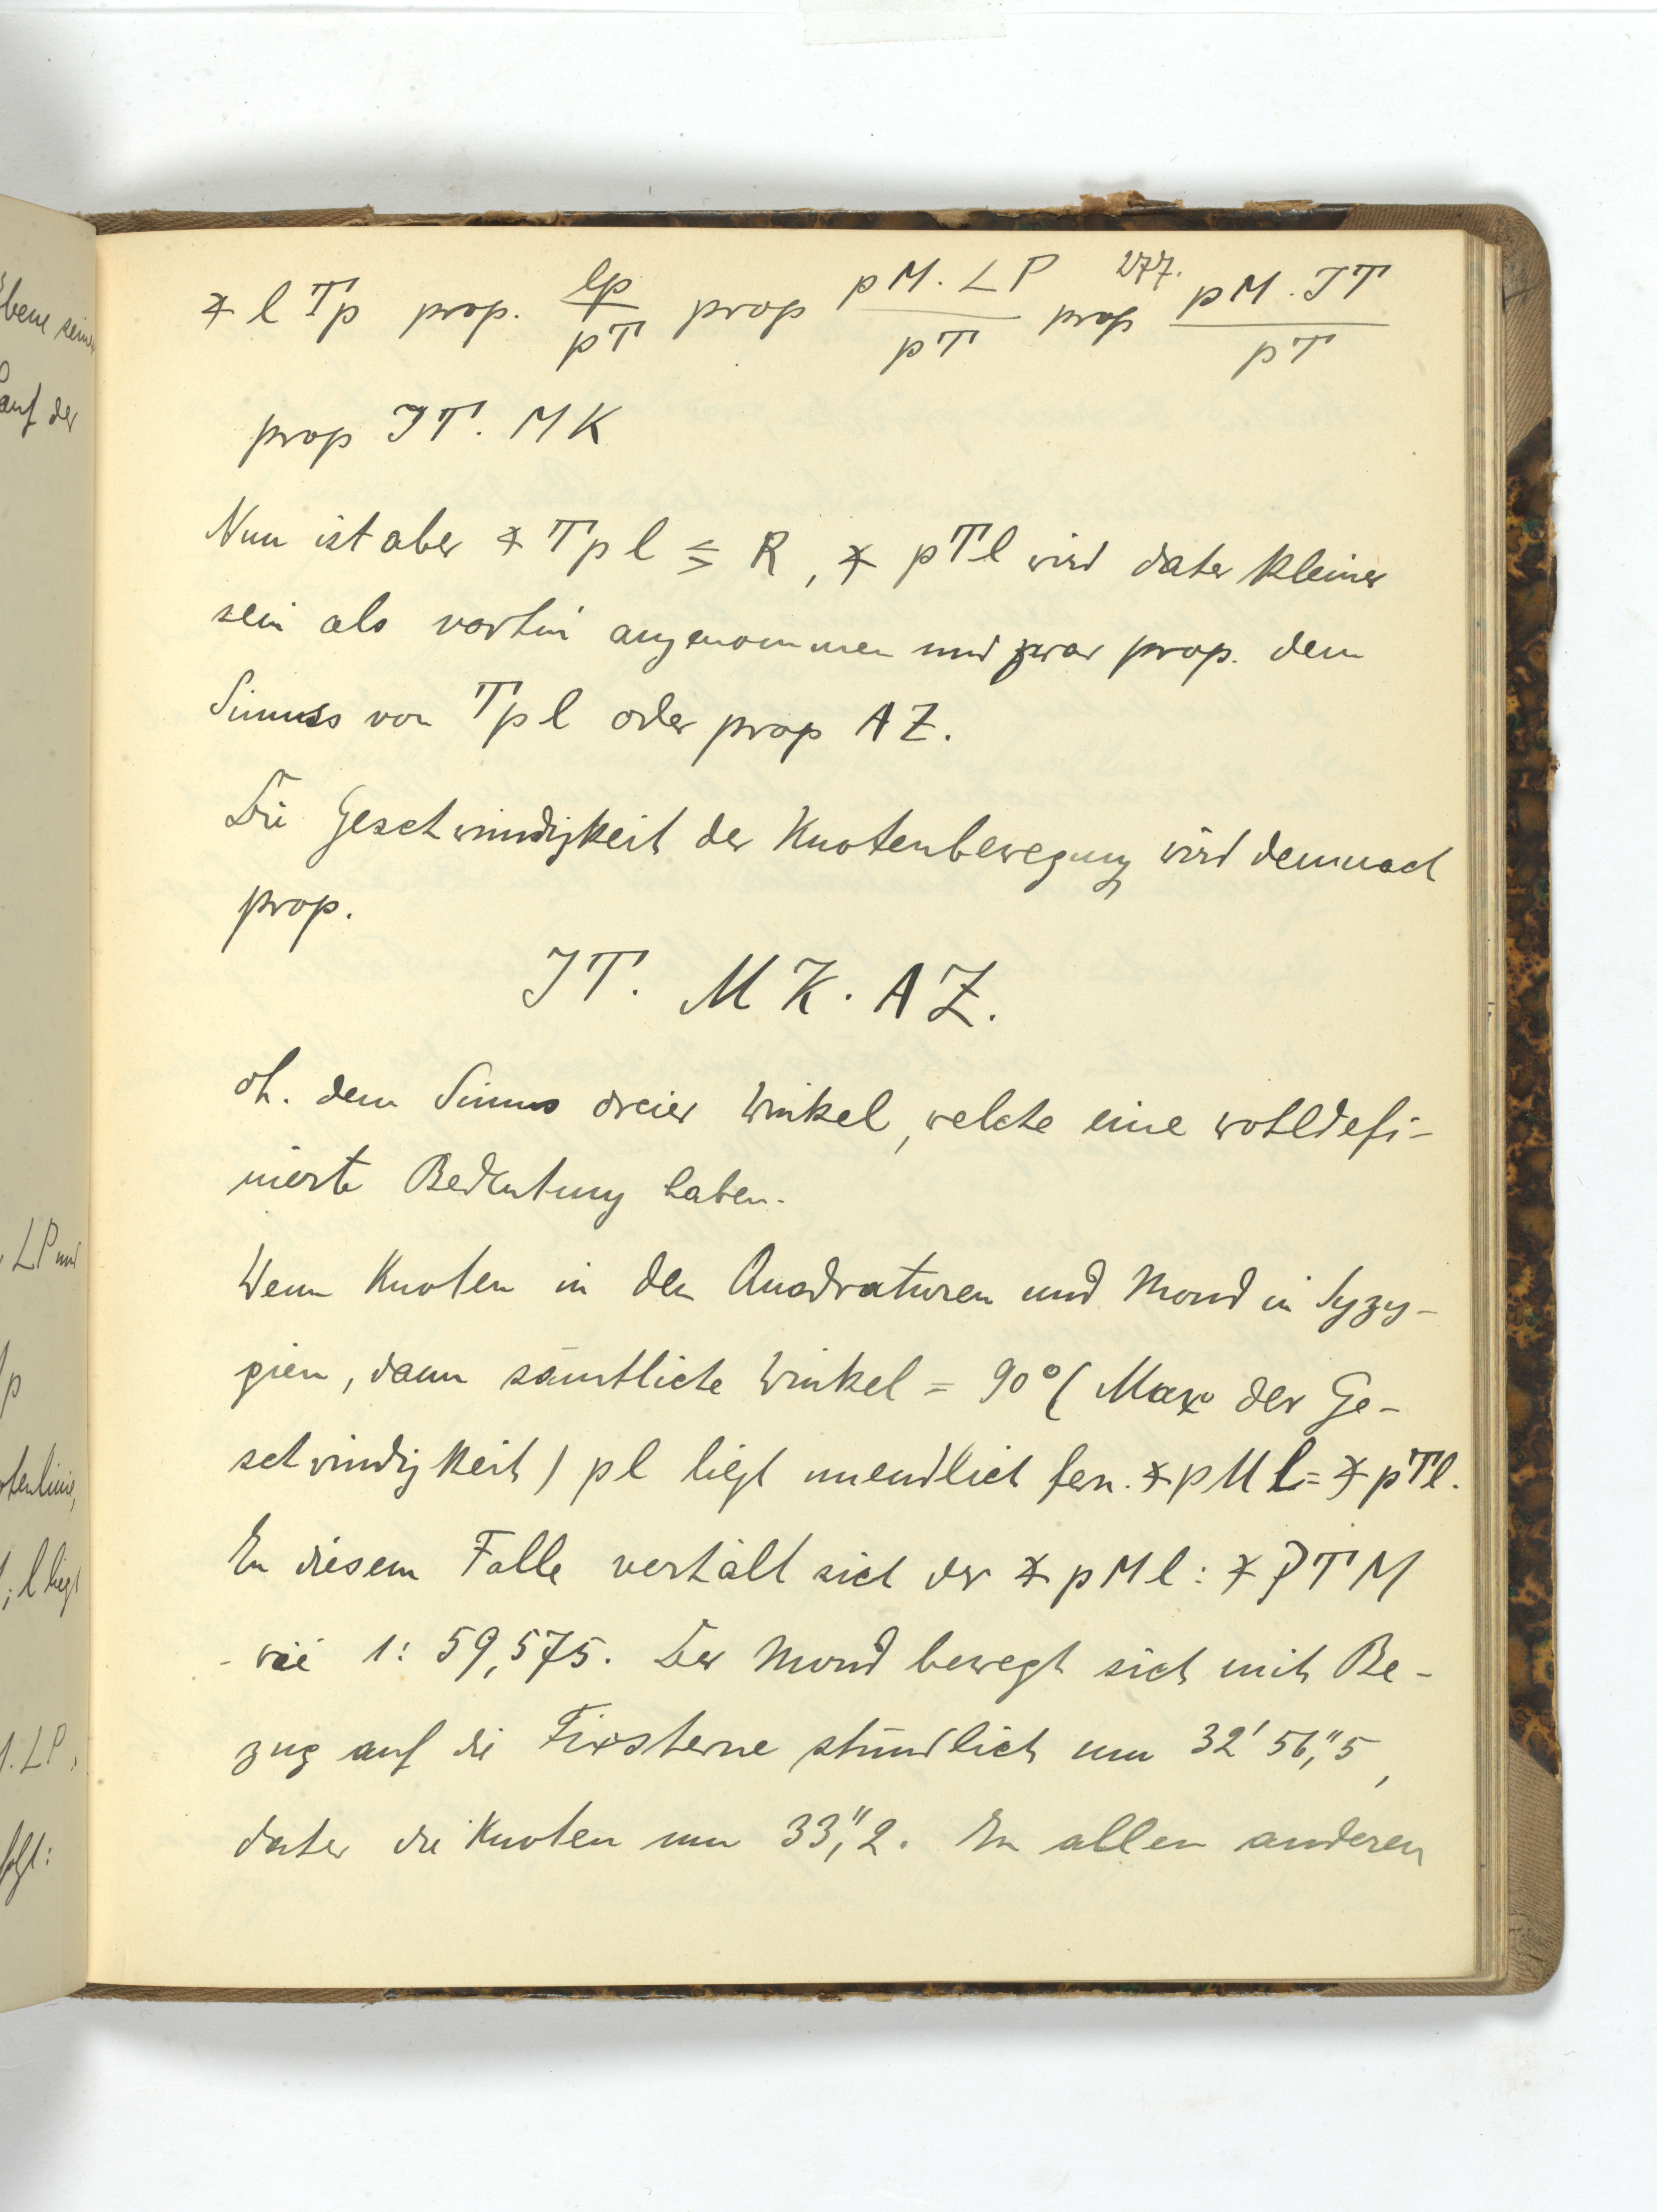 277.
∢ l T p prop. lp/pT prop pM. LP/pT prop pM. JT/pT
prop JT. MK
Nun ist aber ∢ T p l ≶ R, ∢ pTl wird daher kleiner
sein als vorhin angenommen und zwar prop. dem
Sinus von Tpl oder prop AZ.
Die Geschwindigkeit der Knotenbewegung wird demnach
prop.
JT. MK. AZ.
dh. dem Sinus dreier Winkel, welche eine wohldefi-
nierte Bedeutung haben.
Wenn Knoten in den Quadraturen und Mond in Syzy-
gien, dann sämtliche Winkel = 90° (Max der Ge-
schwindigkeit) pl liegt unendlich fern. ∢ pMl = ∢ pTl.
In diesem Falle verhält sich der ∢ pMl : ∢ PTM
wie 1: 59,575. Der Mond bewegt sich mit Be-
zug auf die Fixsterne stündlich um 32' 56,"5,
daher die Knoten um 33,"2. In allen anderen
bene seiner
auf der
LP und
p
otenlinie,
; l liegt
. LP,
folgt: